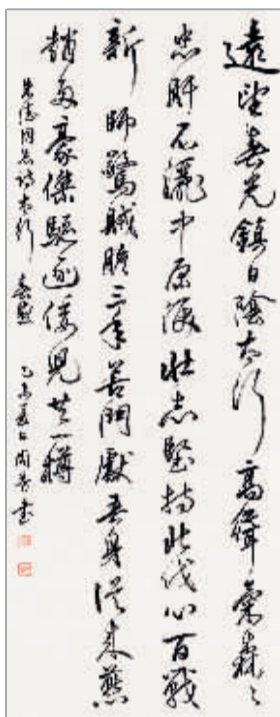 遠望春光鎮日陰太行高聳氣森々
忠肝不灑中原淚壯志堅持北伐心百戰
新師驚賊膽三年苦鬥獻吾身從來燕
趙多豪傑驅逐倭兒共一樽
朱德同志詩太行春感 乙未夏日 書